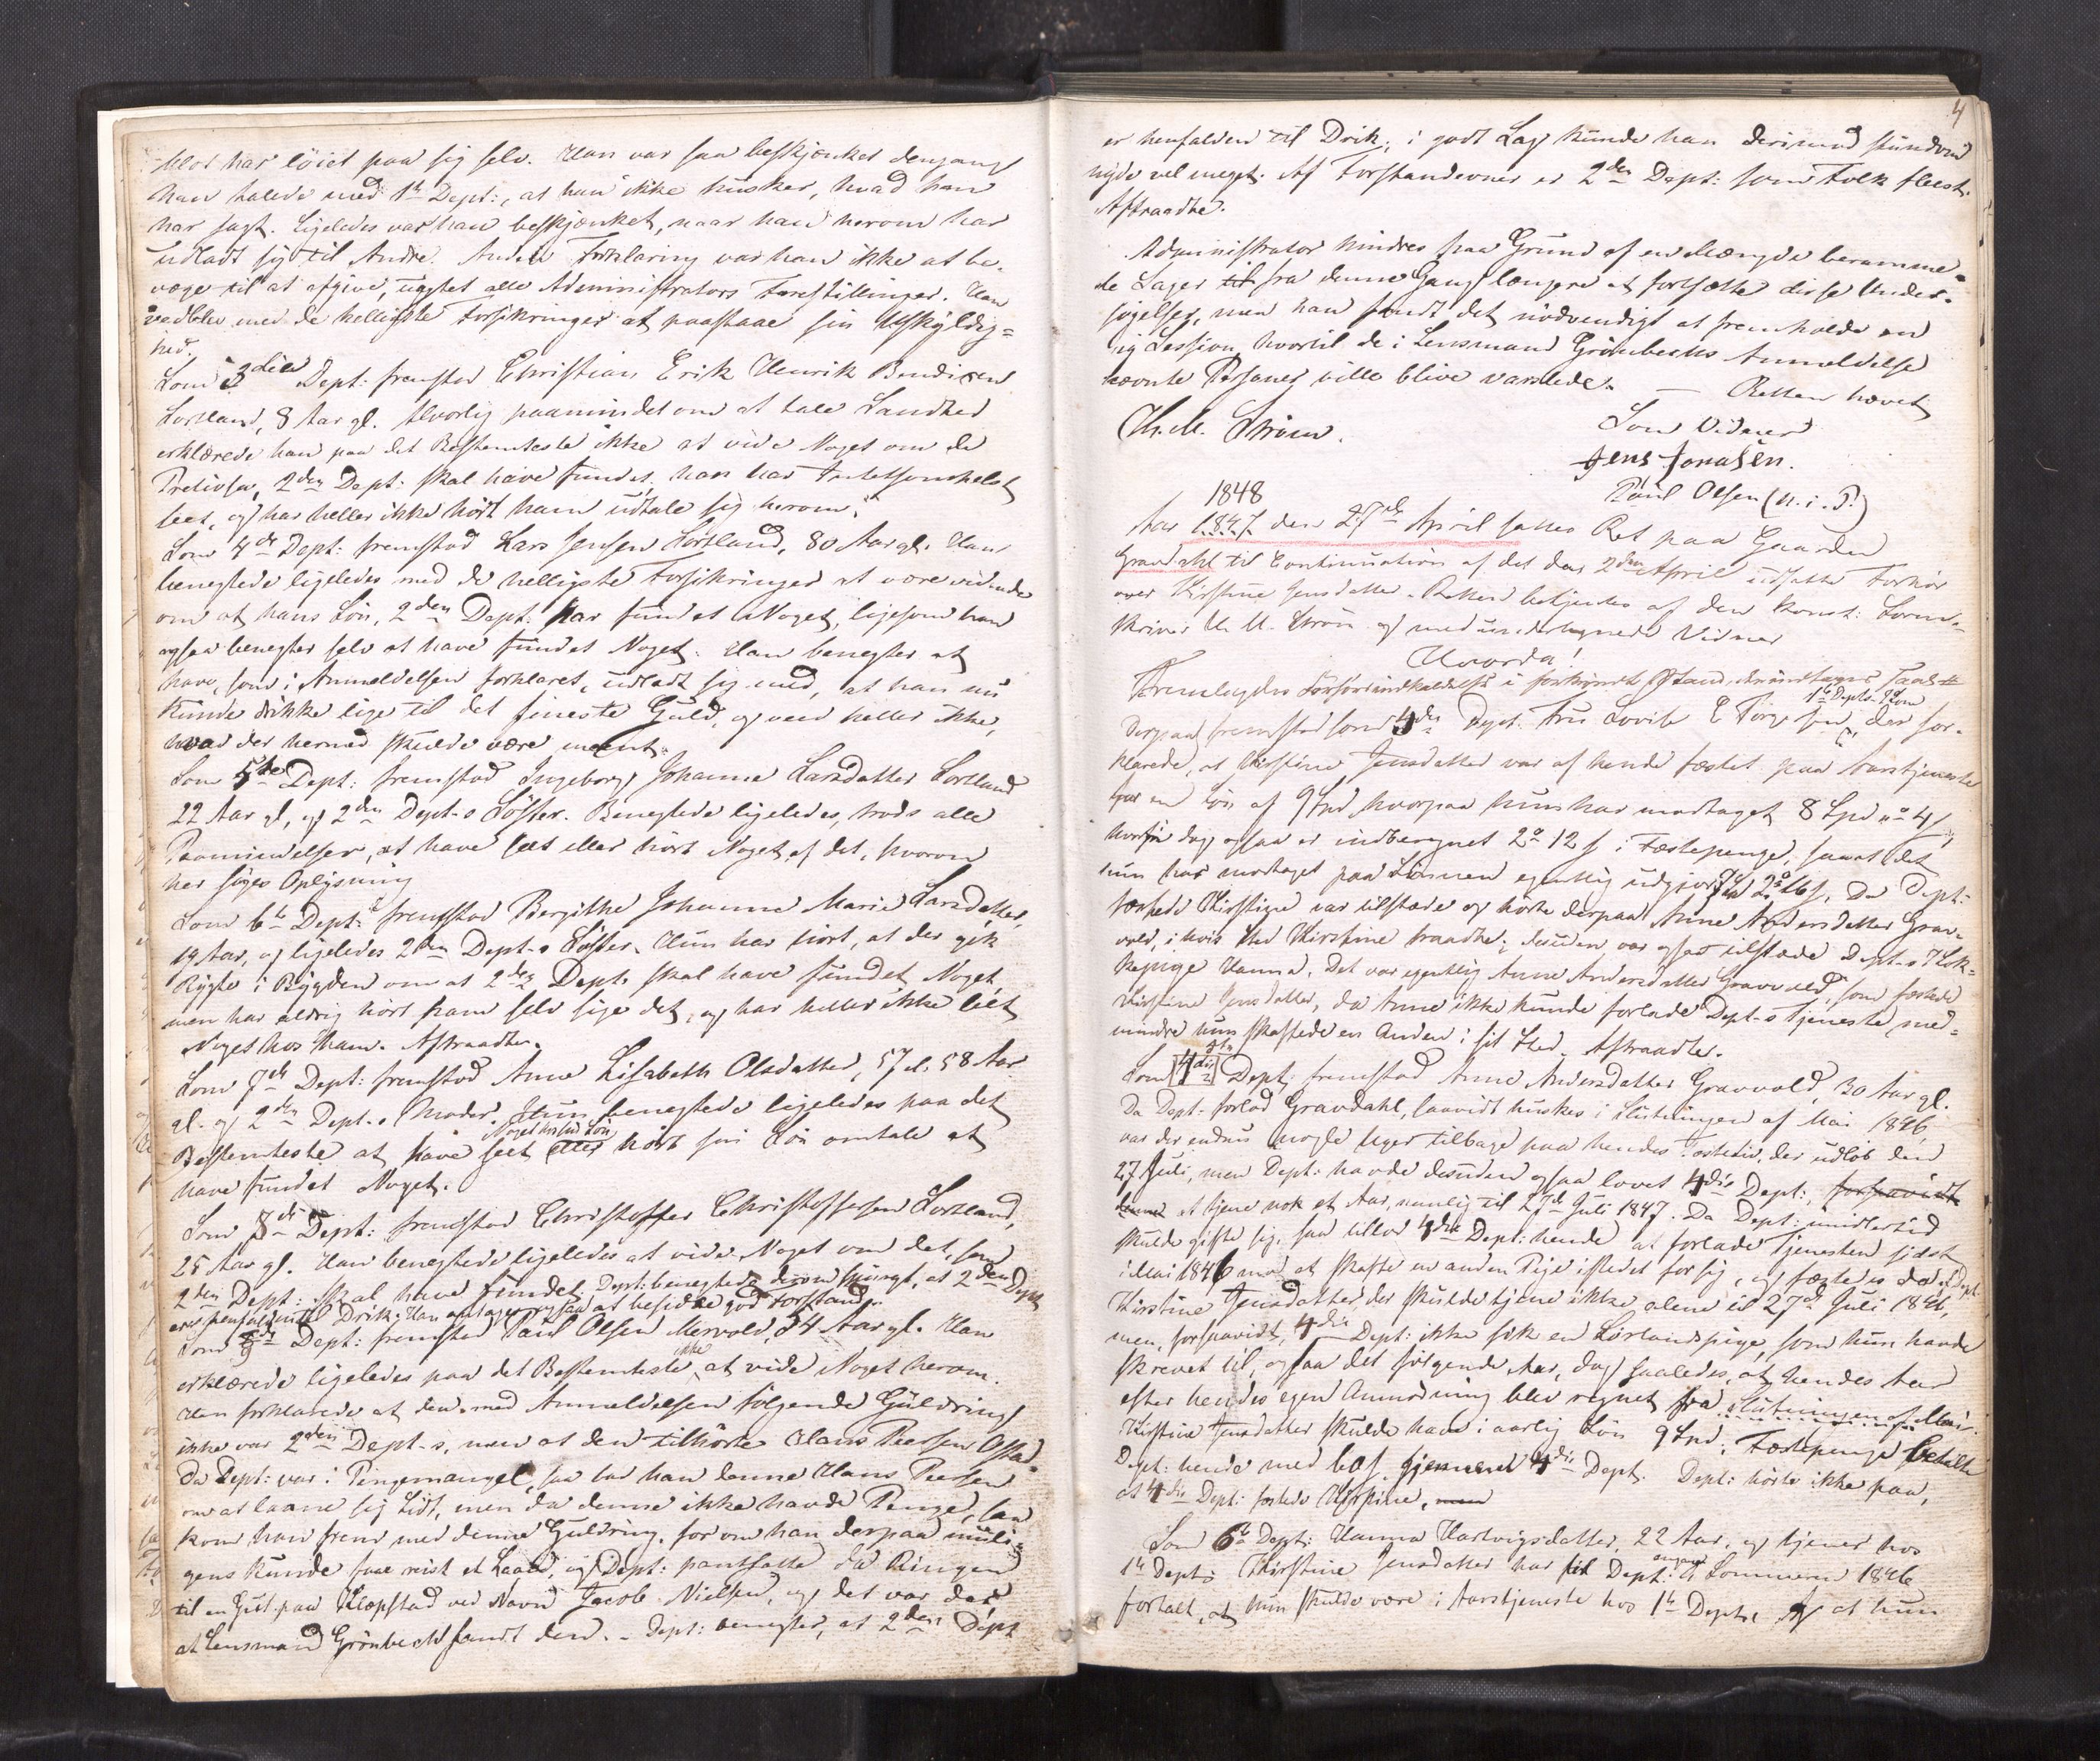 blot har löiet paa sig selv. Han var saa beskjænket dengang
han talede med 1ste Dept:, at han ikke husker, hvad han
har sagt. Ligeledes var han beskjænket, naar han herom har
udladt sig til Andre. Anden Forklaring var han ikke at be-
væge til at afgive, uagtet alle Administrators Forestillinger. Han
vedblev med de helligste Forsikringer at paastaae sin Uskyldig=
hed.
Som 3die Dept: fremstod Christian Erik Henrik Bendixen
Sortland, 8 Aar gl. Alvorlig paamindet om at tale Sandhed
erklærede han paa det Bestemteste ikke at vide Noget om de
Pretiosa, 2den Dept: skal have fundet, han har Intetsomhelst
seet, og har heller ikke hört ham udtale sig herom.
Som 4de Dept: fremstod Lars Jensen Sortland, 80 Aar gl. Han
benegtede ligeledes med de helligste Forsikringer at være vidende
om at hans Sön, 2den Dept: har fundet Noget, ligesom han
ogsaa benegter selv at have fundet Noget. Han benegter at
have, som i Anmeldelsen forklaret, udladt sig med, at han nu
kunde drikke lige til det fineste Guld, og veed heller ikke,
hvad der hermed skulde være meent.
Som 5te Dept: fremstod Ingeborg Johanna Larsdatter Sortland
22 Aar gl, og 2den Dept-s Söster. Benegtede ligeledes, trods alle
Paamindelser, at have seet eller hört Noget af det, hvorom
her söges Oplysning
Som 6te Dept: fremstod Bergithe Johanna Marie Larsdatter,
19 Aar, og ligeledes 2den Dept-s Söster. Hun har hört, at der gik
Rygte i Bygden om at 2den Dept. skal have fundet Noget,
men har aldrig hört ham selv sige det, og har heller ikke seet
Noget hos ham. Aftraadte.
Som 7de Dept: fremstod Anne Lisabeth Olsdatter, 57 el. 58 Aar
gl. og 2den Dept-s Moder. Hun benegtede ligeledes paa det
Noget hos sin Sön
Bestemteste at have seet eller hört sin Sön omtale at
have fundet Noget.
Som 8de Dept: fremstod Christoffer Christoffersen Sortland,
25 Aar gl. Han benegtede ligeledes at vide Noget om det, som
2den Dept: skal have fundet. Dept: benegtede derom spurgt, at 2den Dept
er henfalden til Drik. Han antager ogsaa at besidde god Forstand.
Som 9de Dept: fremstod Paul Olsen Mervold, 34 Aar gl. Han
erklærede ligeledes paa det Bestemteste ikke at vide Noget herom.
Han forklarede at den med Anmeldelsen fölgende Guldring
ikke var 2den Dept-s, men at den tilhörte Hans Peersen
Da Dept: var i Pengemangel, saa bad han denne Hans Peersen
om at laane sig Lidt, men da denne ikke havde Penge, saa
kom han frem med denne Guldring, for om han derpaa muli-
gens kunde faae reist et Laan, og Dept: pantsatte da Ringen
til en Gut paa Klæpstad ved Navn Jacob Nielsen, og det var der
at Lensmand Grönbech fandt den. - Dept: benegter, at 2den Dept
4
er henfalden til Drik; i godt Lag kunde han derimod stundom
nyde vel meget. Af Forstandevner er 2den Dept: som Folk fleest.
Aftraadte.
Administrator hindres paa Grund af en Mængde beramme-
de Sager til fra denne Gang længere at fortsætte disse Under-
sögelser, men han fandt det nödvendigt at fremholde en
ny Session, hvortil de i Lensmand Grönbechs Anmeldelse
nævnte Personer ville blive varslede. — Retten hævet
Th. M. Ström.
Som Vidner
Jens Jonasen.
Paul Olsen (m. i. P.)
1848
Aar 1847 den 27de April sattes Ret paa Gaarden
Gravdahl til Continuation af det den 2den April udsatte Forhör
over Kirstine Jensdatter. Retten betjentes af den Const: Soren-
skriver Th. M. Ström og med undertegnede Vidner
Hvorda!
Fremlagdes Forhörsindkaldelse i forkyndt Stand
1ste Depts
Derpaa fremstod som 4de Dept. Fru Lovise E Torgersen, der for-
klarede, at Kirstine Jensdatter var af hende fæstet paa Aarstjeneste
for en Lön af 9 Spd, hvorpaa hun har modtaget 8 Spd
hvori dog ogsaa er indberegnet 2 12 s i Fæstepenge, saa at det
hun har modtaget paa Lönnen egentlig udgjör Da Dept:
fæstede Kirstine var tilstæde og hörte derpaa Anne Andersdatter Grav-
vold, i hvis Sted Kirstine traadte; desuden var ogsaa tilstæde Dept-s Kok-
kepige Hanna. Det var egentlig Anne Andersdatter Gravvold, som fæstede
Kirstine Jensdatter, da Anne ikke kunde forlade Dept-s Tjeneste med-
mindre hun skaffede en Anden i sit Sted. Aftraadte.
Som 5te Dept: fremstod Anne Andersdatter Gravvold, 30 Aar gl.
Da Dept: forlod Gravdahl, saavidt huskes i Slutningen af Mai 1846,
var der endnu nogle Uger tilbage paa hendes Fæstetid, der udlöb den
27 Juli, men Dept: havde desuden ogsaa lovet 4de Dept:, forsaavidt
denne at tjene nok et Aar, nemlig til 27de Juli 1847. Da Dept: imidlertid
skulde gifte sig, saa tillod 4de Dept: hende at forlade Tjenesten sidst
i Mai 1846 mod at skaffe en anden Pige istedet for sig, og fæstedes da af Dept
Kirstine Jensdatter, der skulde tjene ikke alene til 27de Juli 1846,
men, forsaavidt 4de Dept: ikke fik en Sörlandspige, som hun havde
skrevet til, ogsaa det fölgende Aar, dog saaledes, at hendes Aar
efter hendes egen Anmodning blev regnet fra Slutningen af Mai.
Kirstine Jensdatter skulde have i aarlig Lön 9 Spd. Fæstepenge betalte
Dept: hende med 60 s. 4de Dept. Dept: hörte ikke paa,
at 4de Dept: fæstede Kirstine, men
Som 6te Dept: Hanna Hartvigsdatter, 22 Aar, og tjener hos
1ste Dept: Kirstine Jensdatter har til Dept: engang i Sommeren 1846
fortalt, at hun skulde være i Aarstjeneste hos 1ste Dept: og at hun